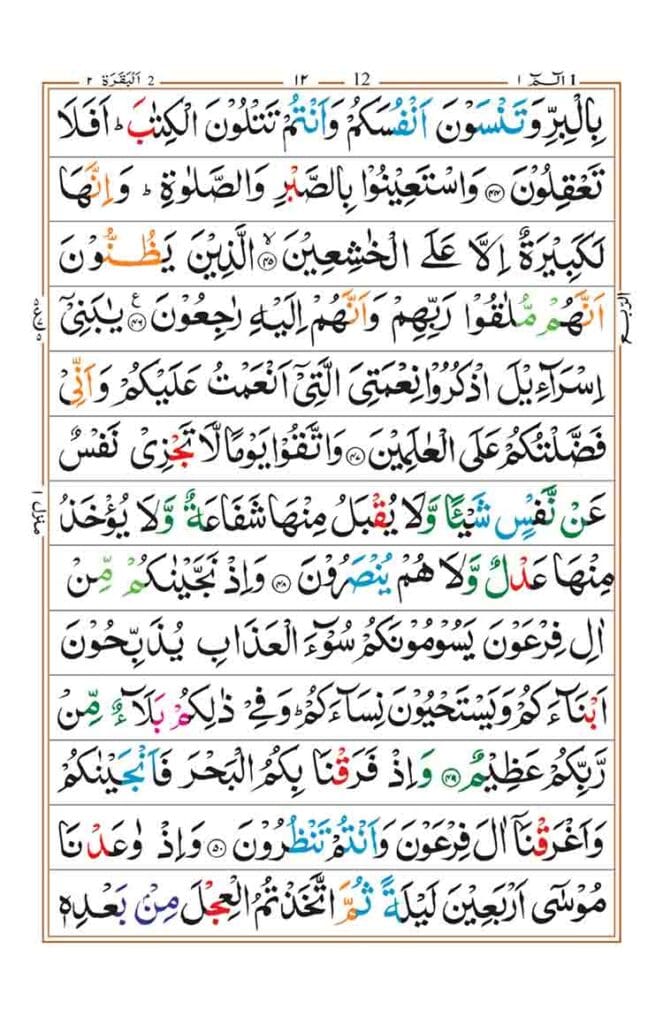 الٓمّٓ ١ 1 ١٢ 12 اَلْبَقَرَة ٢ 2
بِالْبِرِّ وَ تَنْسَوْنَ اَنْفُسَكُمْ وَ اَنْتُمْ تَتْلُوْنَ الْكِتٰبَ ؕ اَفَلَا
تَعْقِلُوْنَ ﴿۴۴﴾ وَ اسْتَعِيْنُوْا بِالصَّبْرِ وَ الصَّلٰوةِ ؕ وَ اِنَّهَا
لَكَبِيْرَةٌ اِلَّا عَلَى الْخٰشِعِيْنَ ﴿ۙ۴۵﴾ الَّذِيْنَ يَظُنُّوْنَ
اَنَّهُمْ مُّلٰقُوْا رَبِّهِمْ وَ اَنَّهُمْ اِلَيْهِ رٰجِعُوْنَ ﴿۴۶﴾ ع يٰبَنِيْۤ
الربع
اِسْرَآءِيْلَ اذْكُرُوْا نِعْمَتِيَ الَّتِيْۤ اَنْعَمْتُ عَلَيْكُمْ وَ اَنِّيْ
فَضَّلْتُكُمْ عَلَى الْعٰلَمِيْنَ ﴿۴۷﴾ وَ اتَّقُوْا يَوْمًا لَّا تَجْزِيْ نَفْسٌ
عَنْ نَّفْسٍ شَيْـًٔا وَّ لَا يُقْبَلُ مِنْهَا شَفَاعَةٌ وَّ لَا يُؤْخَذُ
منزل ١
مِنْهَا عَدْلٌ وَّ لَا هُمْ يُنْصَرُوْنَ ﴿۴۸﴾ وَ اِذْ نَجَّيْنٰكُمْ مِّنْ
اٰلِ فِرْعَوْنَ يَسُوْمُوْنَكُمْ سُوْٓءَ الْعَذَابِ يُذَبِّحُوْنَ
اَبْنَآءَكُمْ وَ يَسْتَحْيُوْنَ نِسَآءَكُمْ ؕ وَ فِيْ ذٰلِكُمْ بَلَآءٌ مِّنْ
رَّبِّكُمْ عَظِيْمٌ ﴿۴۹﴾ وَ اِذْ فَرَقْنَا بِكُمُ الْبَحْرَ فَاَنْجَيْنٰكُمْ
وَ اَغْرَقْنَاۤ اٰلَ فِرْعَوْنَ وَ اَنْتُمْ تَنْظُرُوْنَ ﴿۵۰﴾ وَ اِذْ وٰعَدْنَا
مُوْسٰۤى اَرْبَعِيْنَ لَيْلَةً ثُمَّ اتَّخَذْتُمُ الْعِجْلَ مِنْۢ بَعْدِهٖ